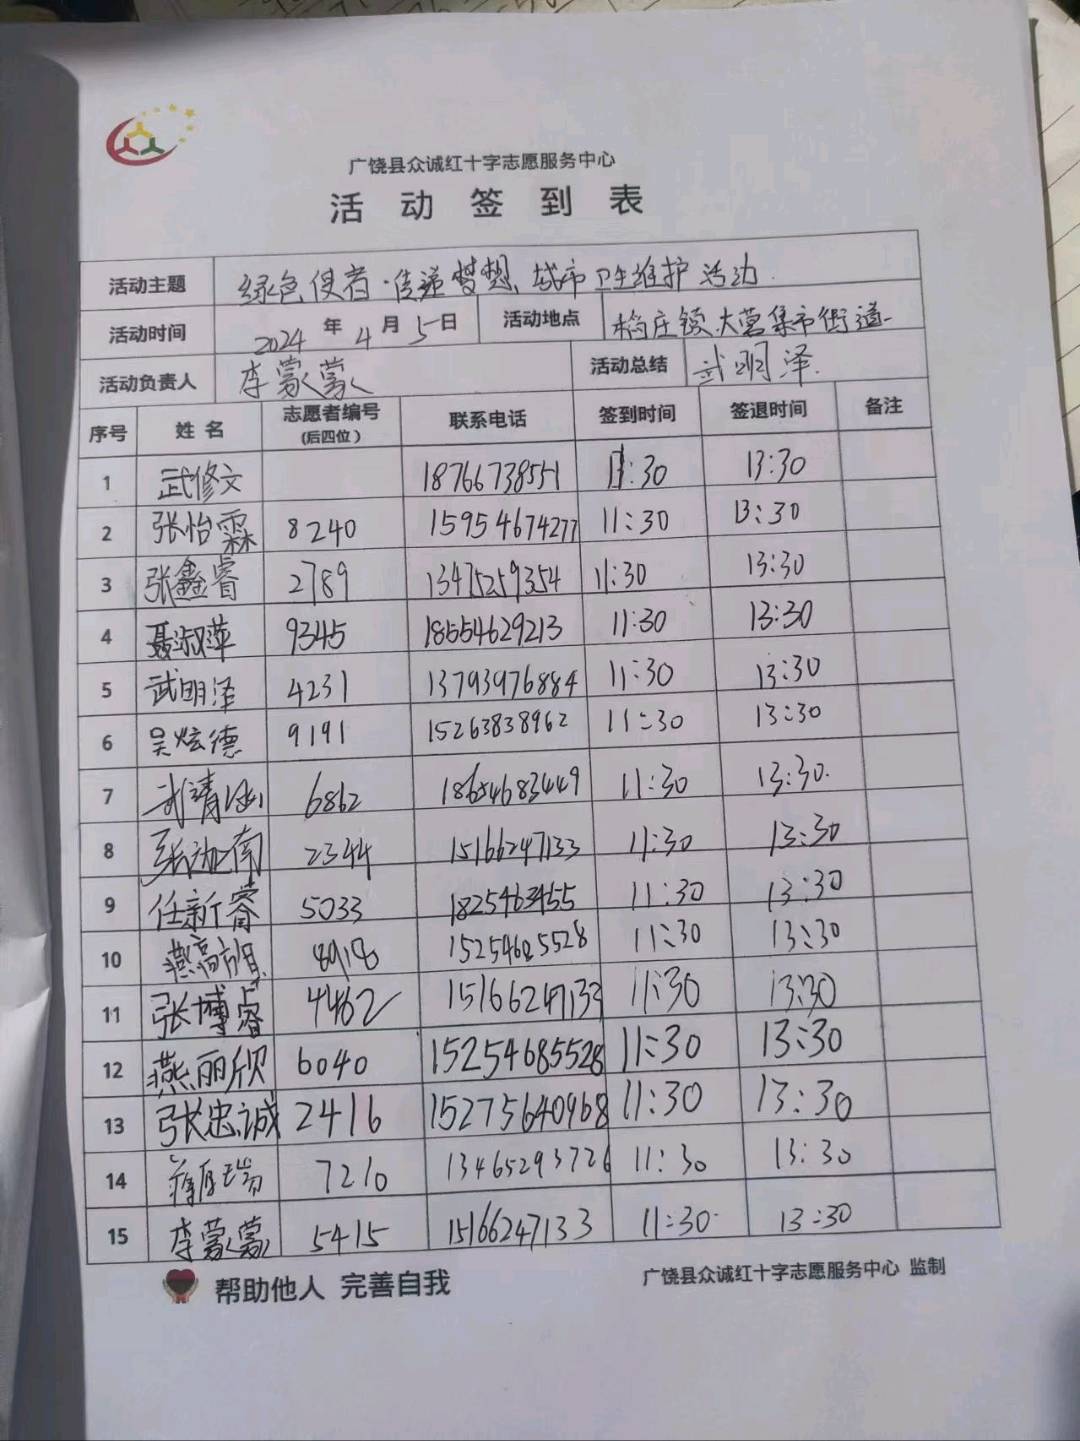 广饶县众诚红十字志愿服务中心
活动签到表
活动主题 绿色使者·传递梦想、城市卫生维护活动.
活动时间 2024年4月5日 活动地点 大营集市街道
活动负责人 李蒙蒙 活动总结 武明泽.
序号 姓名 志愿者编号(后四位) 联系电话 签到时间 签退时间 备注
1 武修文 18766738551 11:30 13:30
2 张怡霖 8240 15954674277 11:30 13:30
3 张鑫睿 2789 13475259354 11:30 13:30
4 聂淑萍 9345 18554629213 11:30 13:30
5 武明泽 4231 13793976884 11:30 13:30
6 吴炫德 9191 15263838962 11:30 13:30
7 武靖 6862 18654683449 11:30 13:30.
8 张 南 2344 15166247133 11:30 13:30
9 任新睿 5033 1825463455 11:30 13:30
10 燕 11:30 13:30
11 张博睿 4462 15166247133 11:30 13:30
12 燕丽欣 6040 15254685528 11:30 13:30
13 张忠诚 2416 15275640968 11:30 13:30
14 7210 13465293726 11:30 13:30
15 李蒙蒙 5415 15166247133 11:30 13:30
帮助他人 完善自我 广饶县众诚红十字志愿服务中心 监制